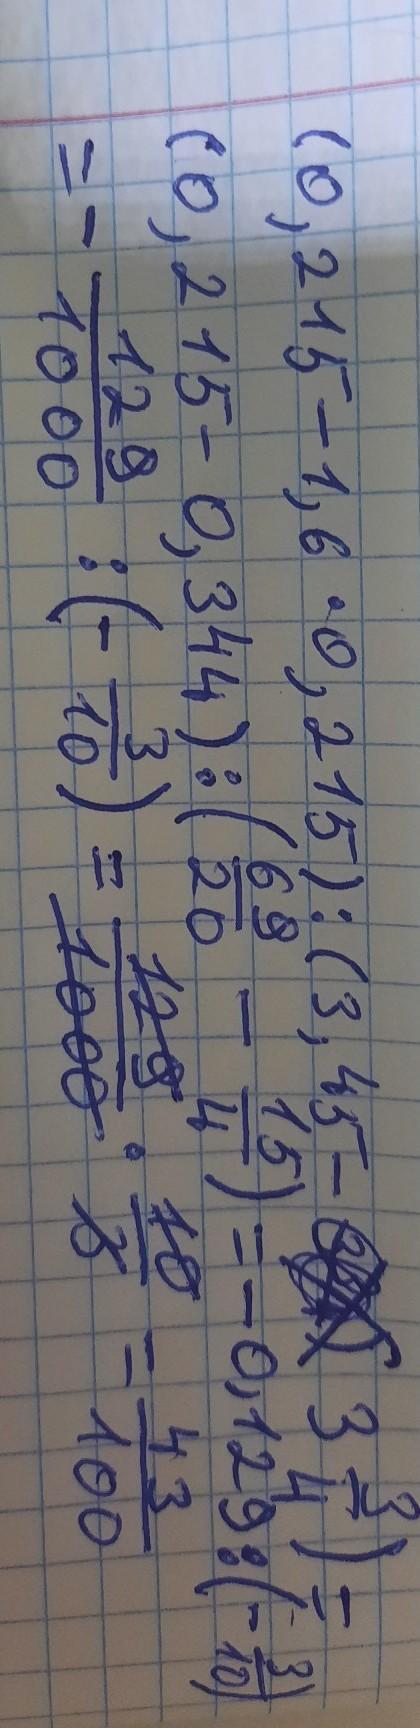 (0,215 - 1,6 · 0,215) : (3,45 - 3 3/4) =
(0,215 - 0,344) : (69/20 - 15/4) = -0,129 : (-3/10)
= - 129/1000 : (- 3/10) = 129/1000 · 10/3 = 43/100